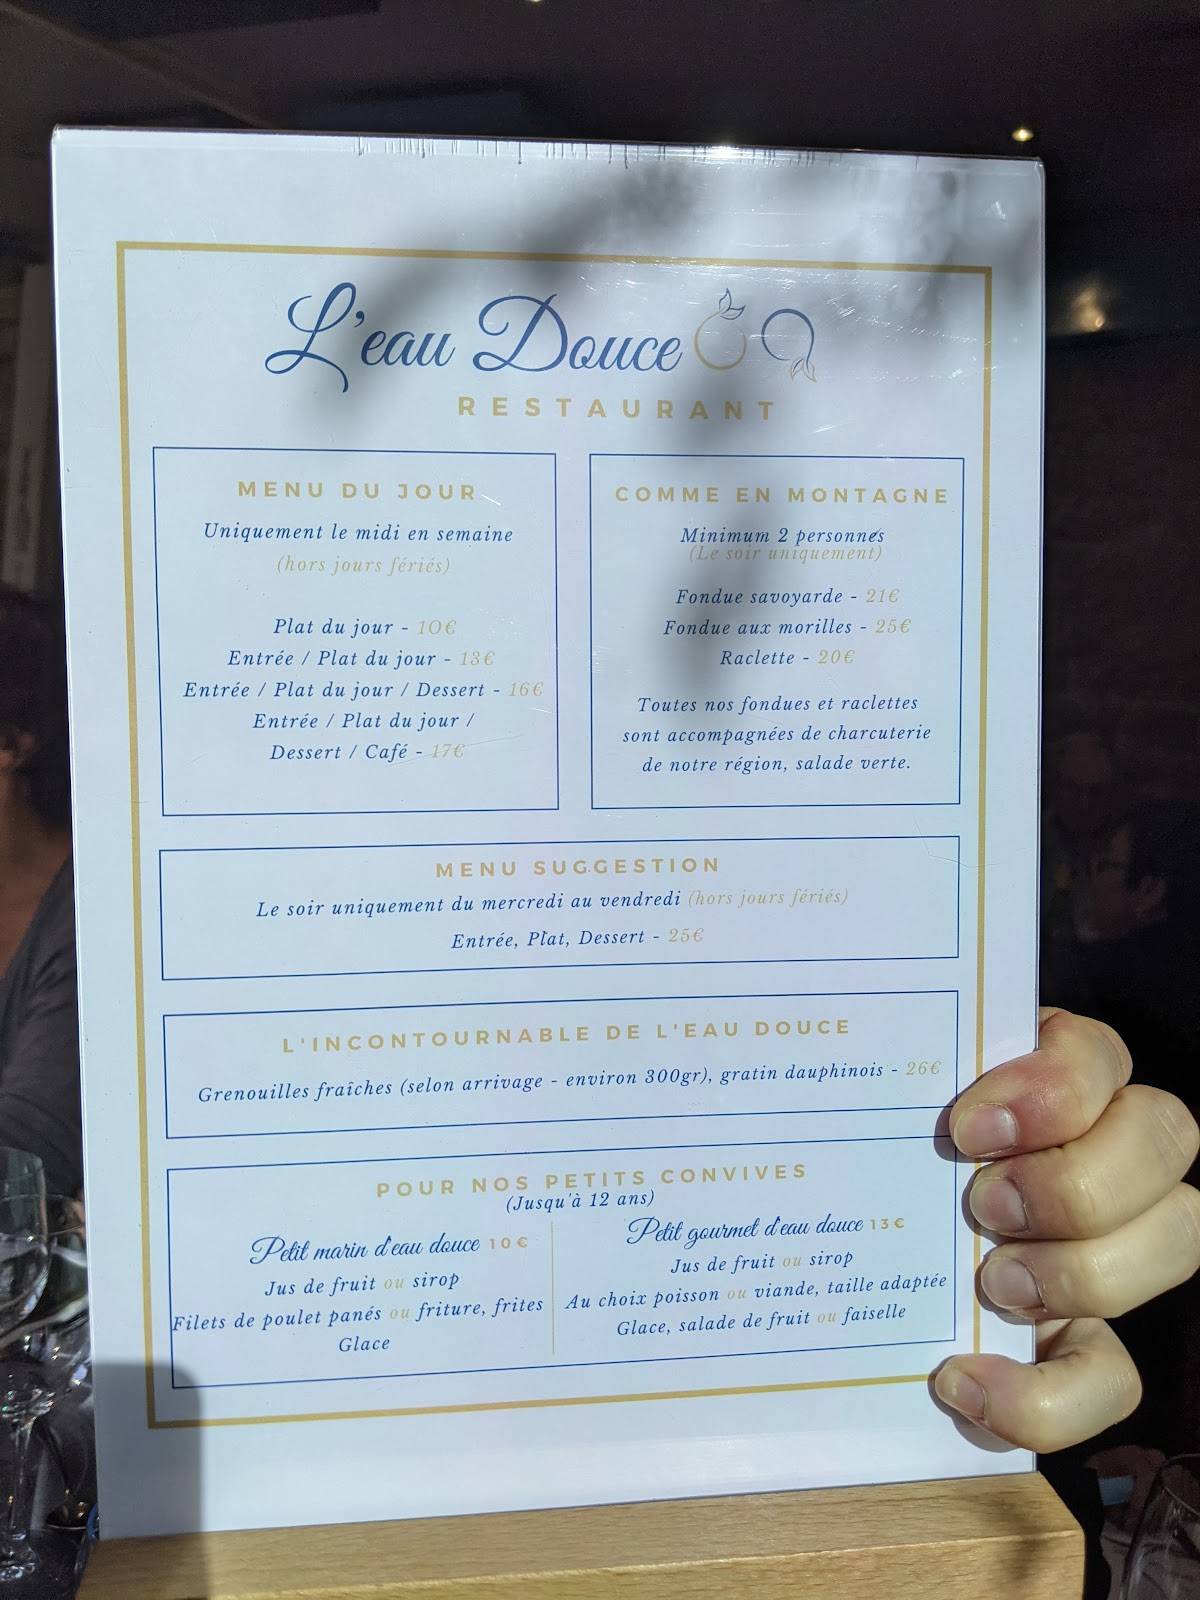 L'eau Douce
RESTAURANT
MENU DU JOUR
Uniquement le midi en semaine
(hors jours fériés)
Plat du jour - 10€
Entrée / Plat du jour - 13€
Entrée / Plat du jour / Dessert - 16€
Entrée / Plat du jour /
Dessert / Café - 17€
COMME EN MONTAGNE
Minimum 2 personnes
(Le soir uniquement)
Fondue savoyarde - 21€
Fondue aux morilles - 25€
Raclette - 20€
Toutes nos fondues et raclettes
sont accompagnées de charcuterie
de notre région, salade verte.
MENU SUGGESTION
Le soir uniquement du mercredi au vendredi (hors jours fériés)
Entrée, Plat, Dessert - 25€
L'INCONTOURNABLE DE L'EAU DOUCE
Grenouilles fraîches (selon arrivage - environ 300gr), gratin dauphinois - 26€
POUR NOS PETITS CONVIVES
(Jusqu'à 12 ans)
Petit marin d'eau douce 10€
Jus de fruit ou sirop
Filets de poulet panés ou friture, frites
Glace
Petit gourmet d'eau douce 13€
Jus de fruit ou sirop
Au choix poisson ou viande, taille adaptée
Glace, salade de fruit ou faiselle